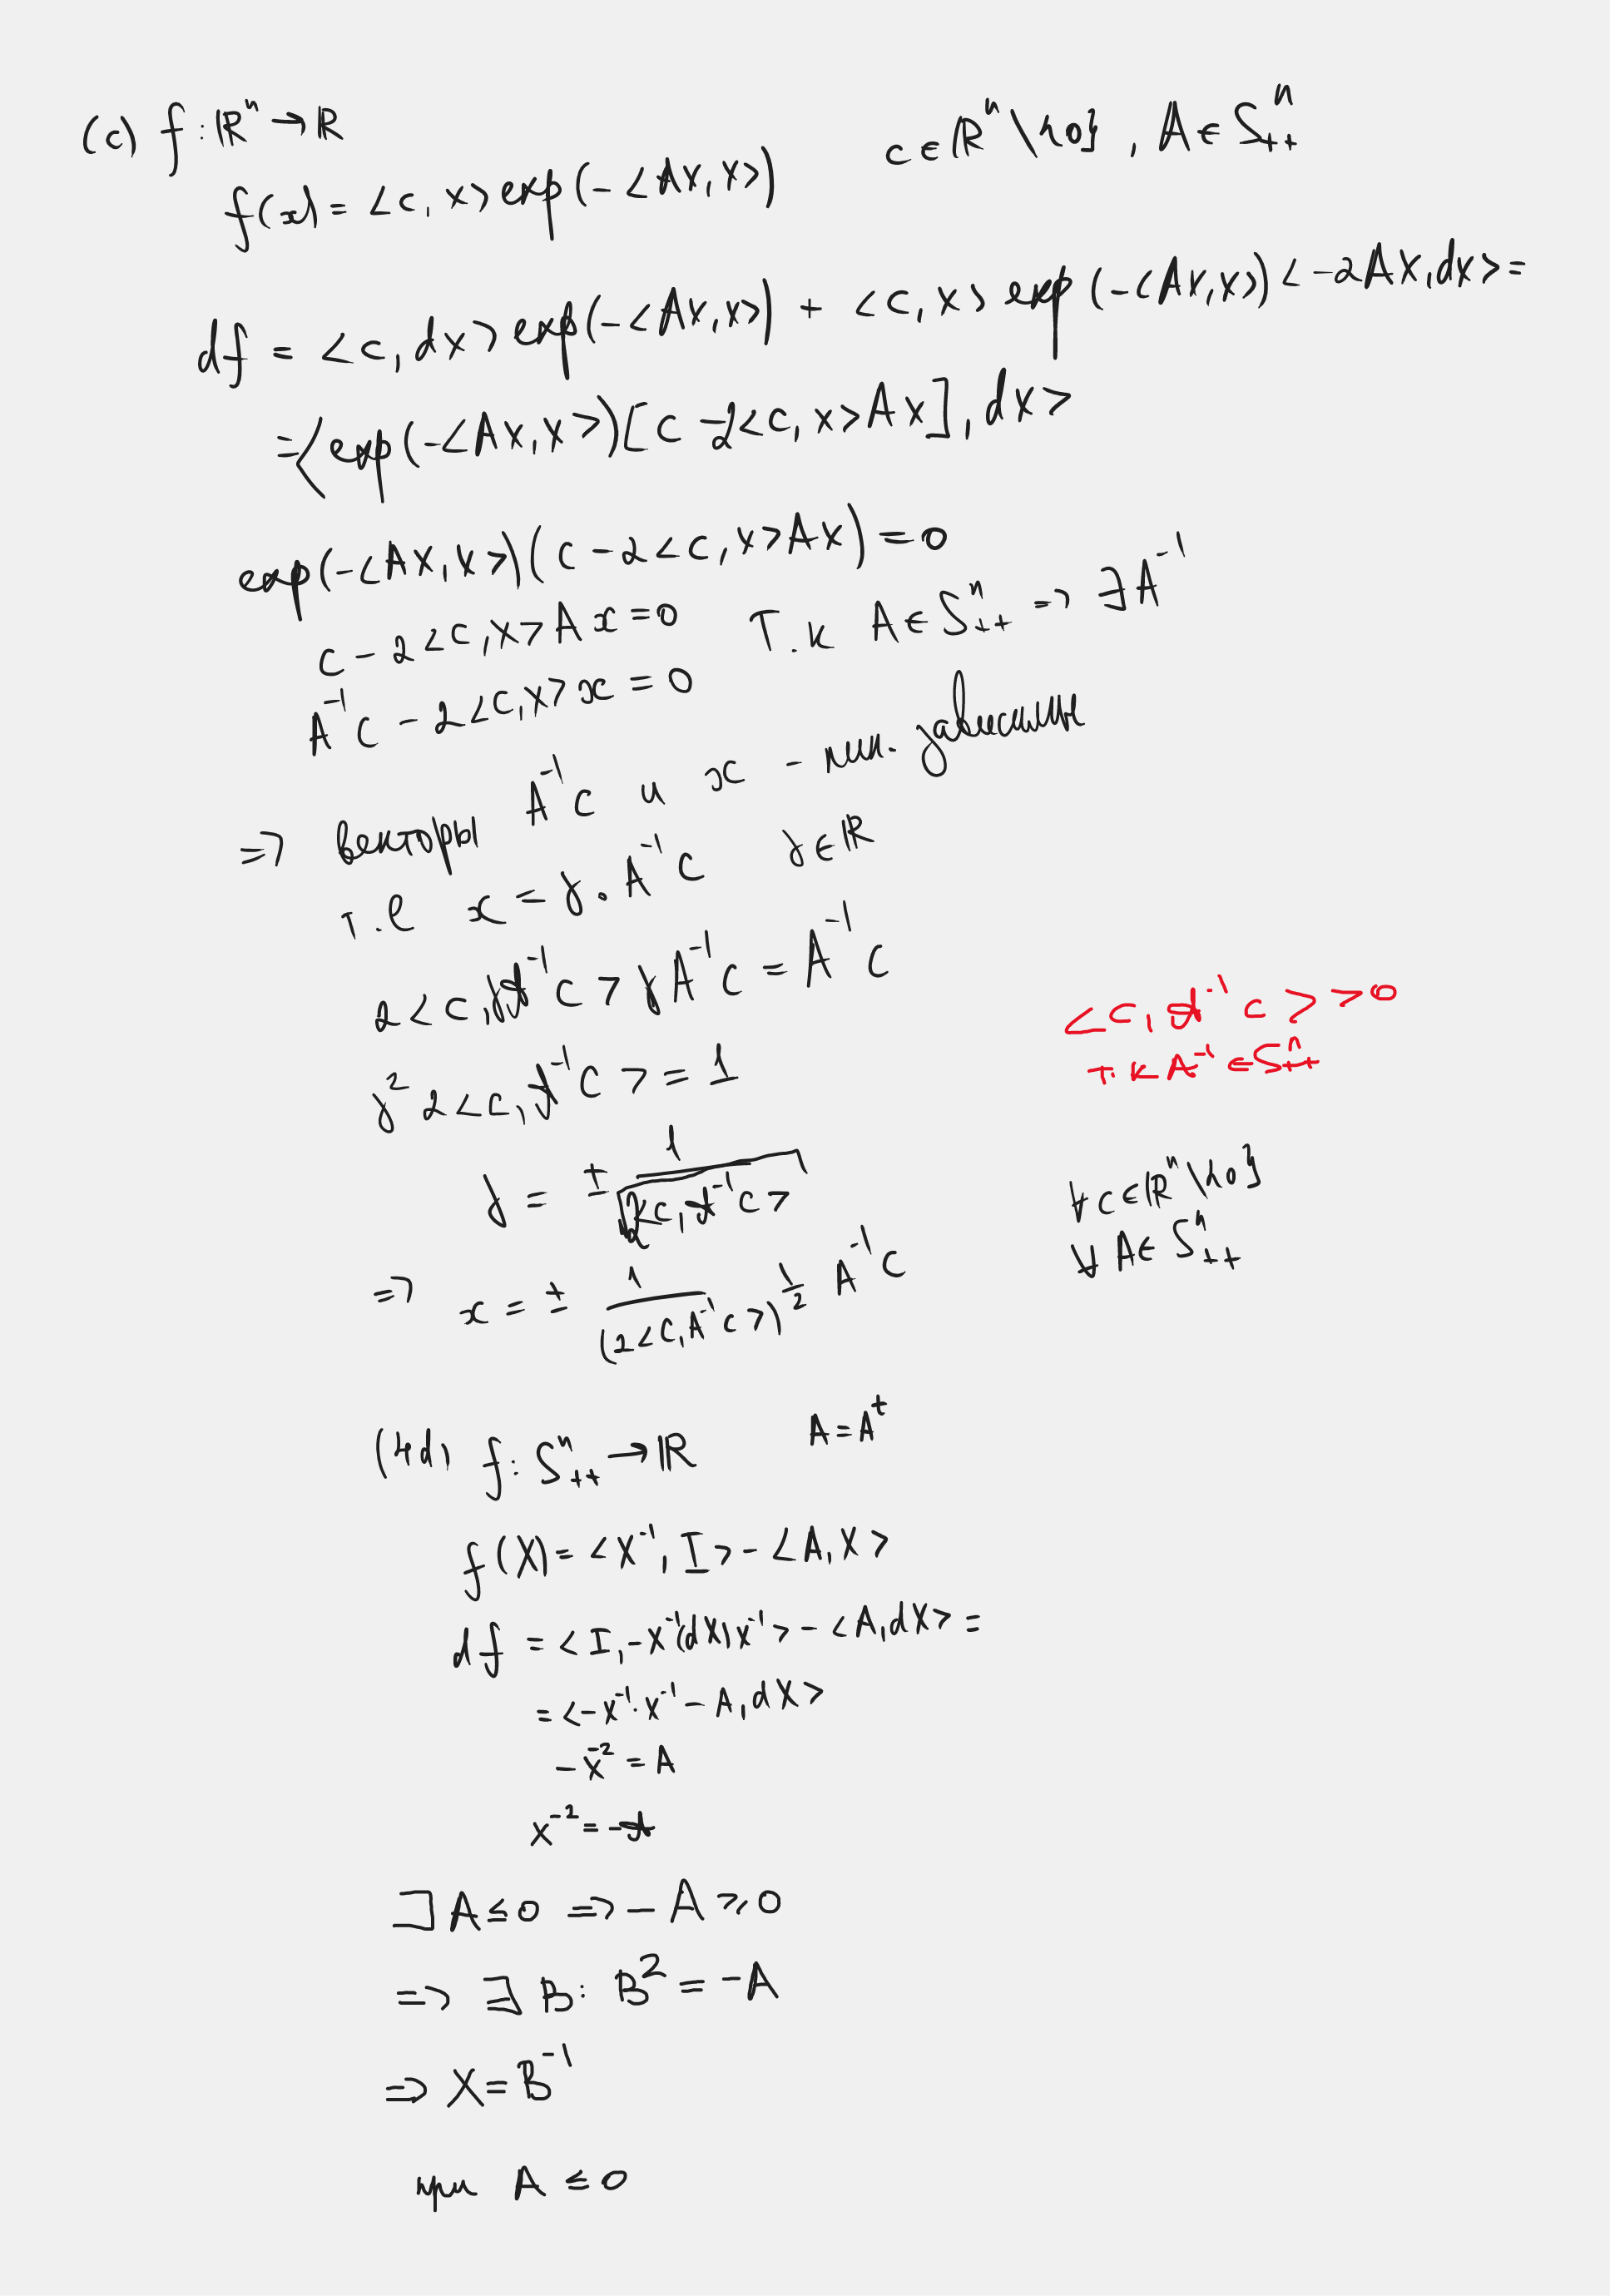 (c) f: ℝⁿ → ℝ c ∈ ℝⁿ \ {0}, A ∈ Sⁿ₊₊
f(x) = <c, x> exp(-<Ax, x>)
df = <c, dx> exp(-<Ax, x>) + <c, x> exp(-<Ax, x>) <-2Ax, dx> =
= <exp(-<Ax, x>)[c - 2<c, x>Ax], dx>
exp(-<Ax, x>)(c - 2<c, x>Ax) = 0
c - 2<c, x>Ax = 0 Т.к A ∈ Sⁿ₊₊ => ∃A⁻¹
A⁻¹c - 2<c, x>x = 0
=> векторы A⁻¹c и x - лин. зависимые
т.е x = γ · A⁻¹c γ ∈ ℝ
2<c, γA⁻¹c> γA⁻¹c = A⁻¹c
<c, A⁻¹c> > 0
γ² 2<c, A⁻¹c> = 1
т.к A⁻¹ ∈ Sⁿ₊₊
γ = ± 1/√(2<c, A⁻¹c>)
∀c ∈ ℝⁿ \ {0}
∀A ∈ Sⁿ₊₊
=> x = ± 1/(2<c, A⁻¹c>)^½ A⁻¹c
(4d) f: Sⁿ₊₊ → ℝ A = Aᵗ
f(X) = <X⁻¹, I> - <A, X>
df = <I, -X⁻¹(dX)X⁻¹> - <A, dX> =
= <-X⁻¹·X⁻¹ - A, dX>
-X⁻² = A
X⁻² = -A
⊐ A ≤ 0 => -A ≥ 0
=> ∃ B: B² = -A
=> X = B⁻¹
при A ≤ 0